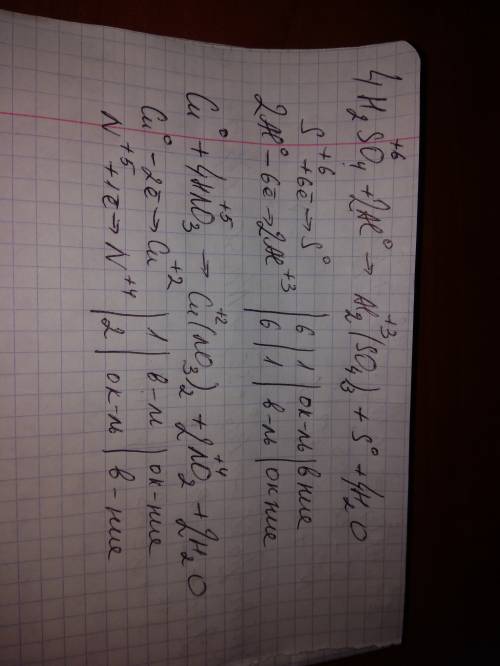 4H₂S⁺⁶O₄ + 2Al⁰ → Al₂⁺³(SO₄)₃ + S⁰ + 4H₂O
S⁺⁶ + 6ē → S⁰ | 6 | 1 | ок-ль | в-ние
2Al⁰ - 6ē → 2Al⁺³ | 6 | 1 | в-ль | ок-ние
Cu⁰ + 4HN⁺⁵O₃ → Cu⁺²(NO₃)₂ + 2N⁺⁴O₂ + 2H₂O
Cu⁰ - 2ē → Cu⁺² | 1 | в-ль | ок-ние
N⁺⁵ + 1ē → N⁺⁴ | 2 | ок-ль | в-ние